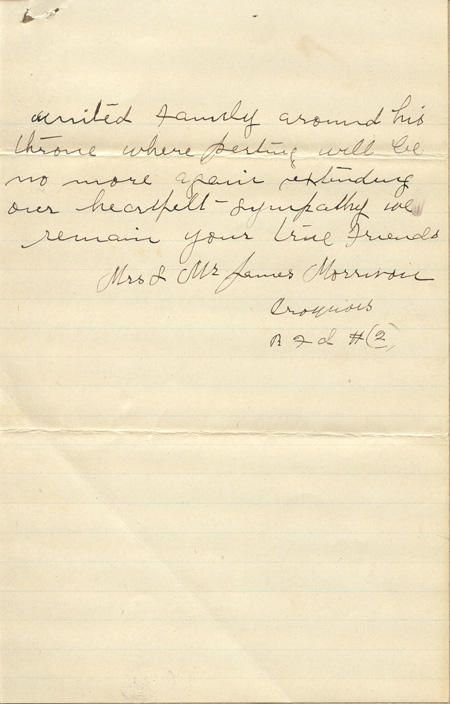 united family around his
throne where parting will be
no more again extending
our heartfelt sympathy we
remain your true Friends
Mrs & Mr James Morrison
Croquois
R F d #(2)